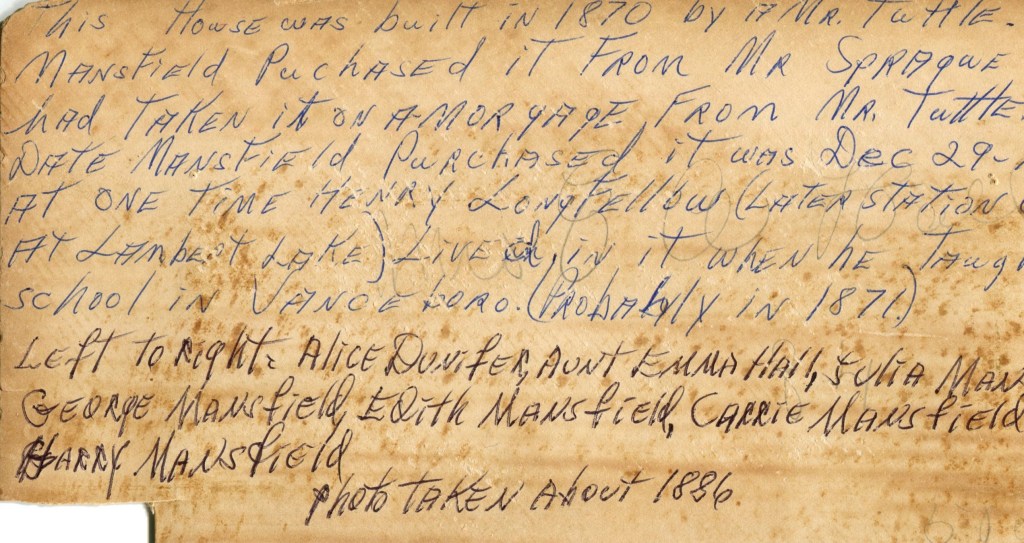 This House was built in 1870 by a Mr. Tuttle.
Mansfield Puchased it From Mr Sprague
had Taken it on a morgage From Mr. Tuttle
Date Mansfield Purchased it was Dec 29-
At one time Henry Longfellow (Later station
At Lambert Lake) Lived in it when he Taug
school in Vanceboro. (Probably in 1871)
Left to right: Alice Dunifer, Aunt Emma Hall, Julia Man
George Mansfield, Edith Mansfield, Carrie Mansfield
Harry Mansfield
photo taken about 1886